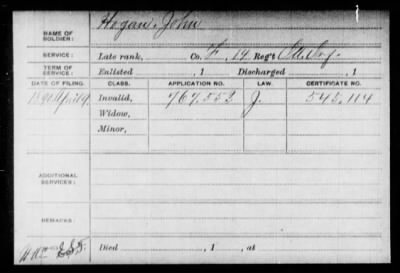 NAME OF SOLDIER: Hogan, John
SERVICE: Late rank, Co. F, 14 Reg't Inf.
TERM OF SERVICE: Enlisted , 1 Discharged , 1
DATE OF FILING. CLASS. APPLICATION NO. LAW. CERTIFICATE NO.
1890 April 19 Invalid, 767.553 J. 545.114
Widow,
Minor,
ADDITIONAL SERVICES:
REMARKS:
Died , 1 , at